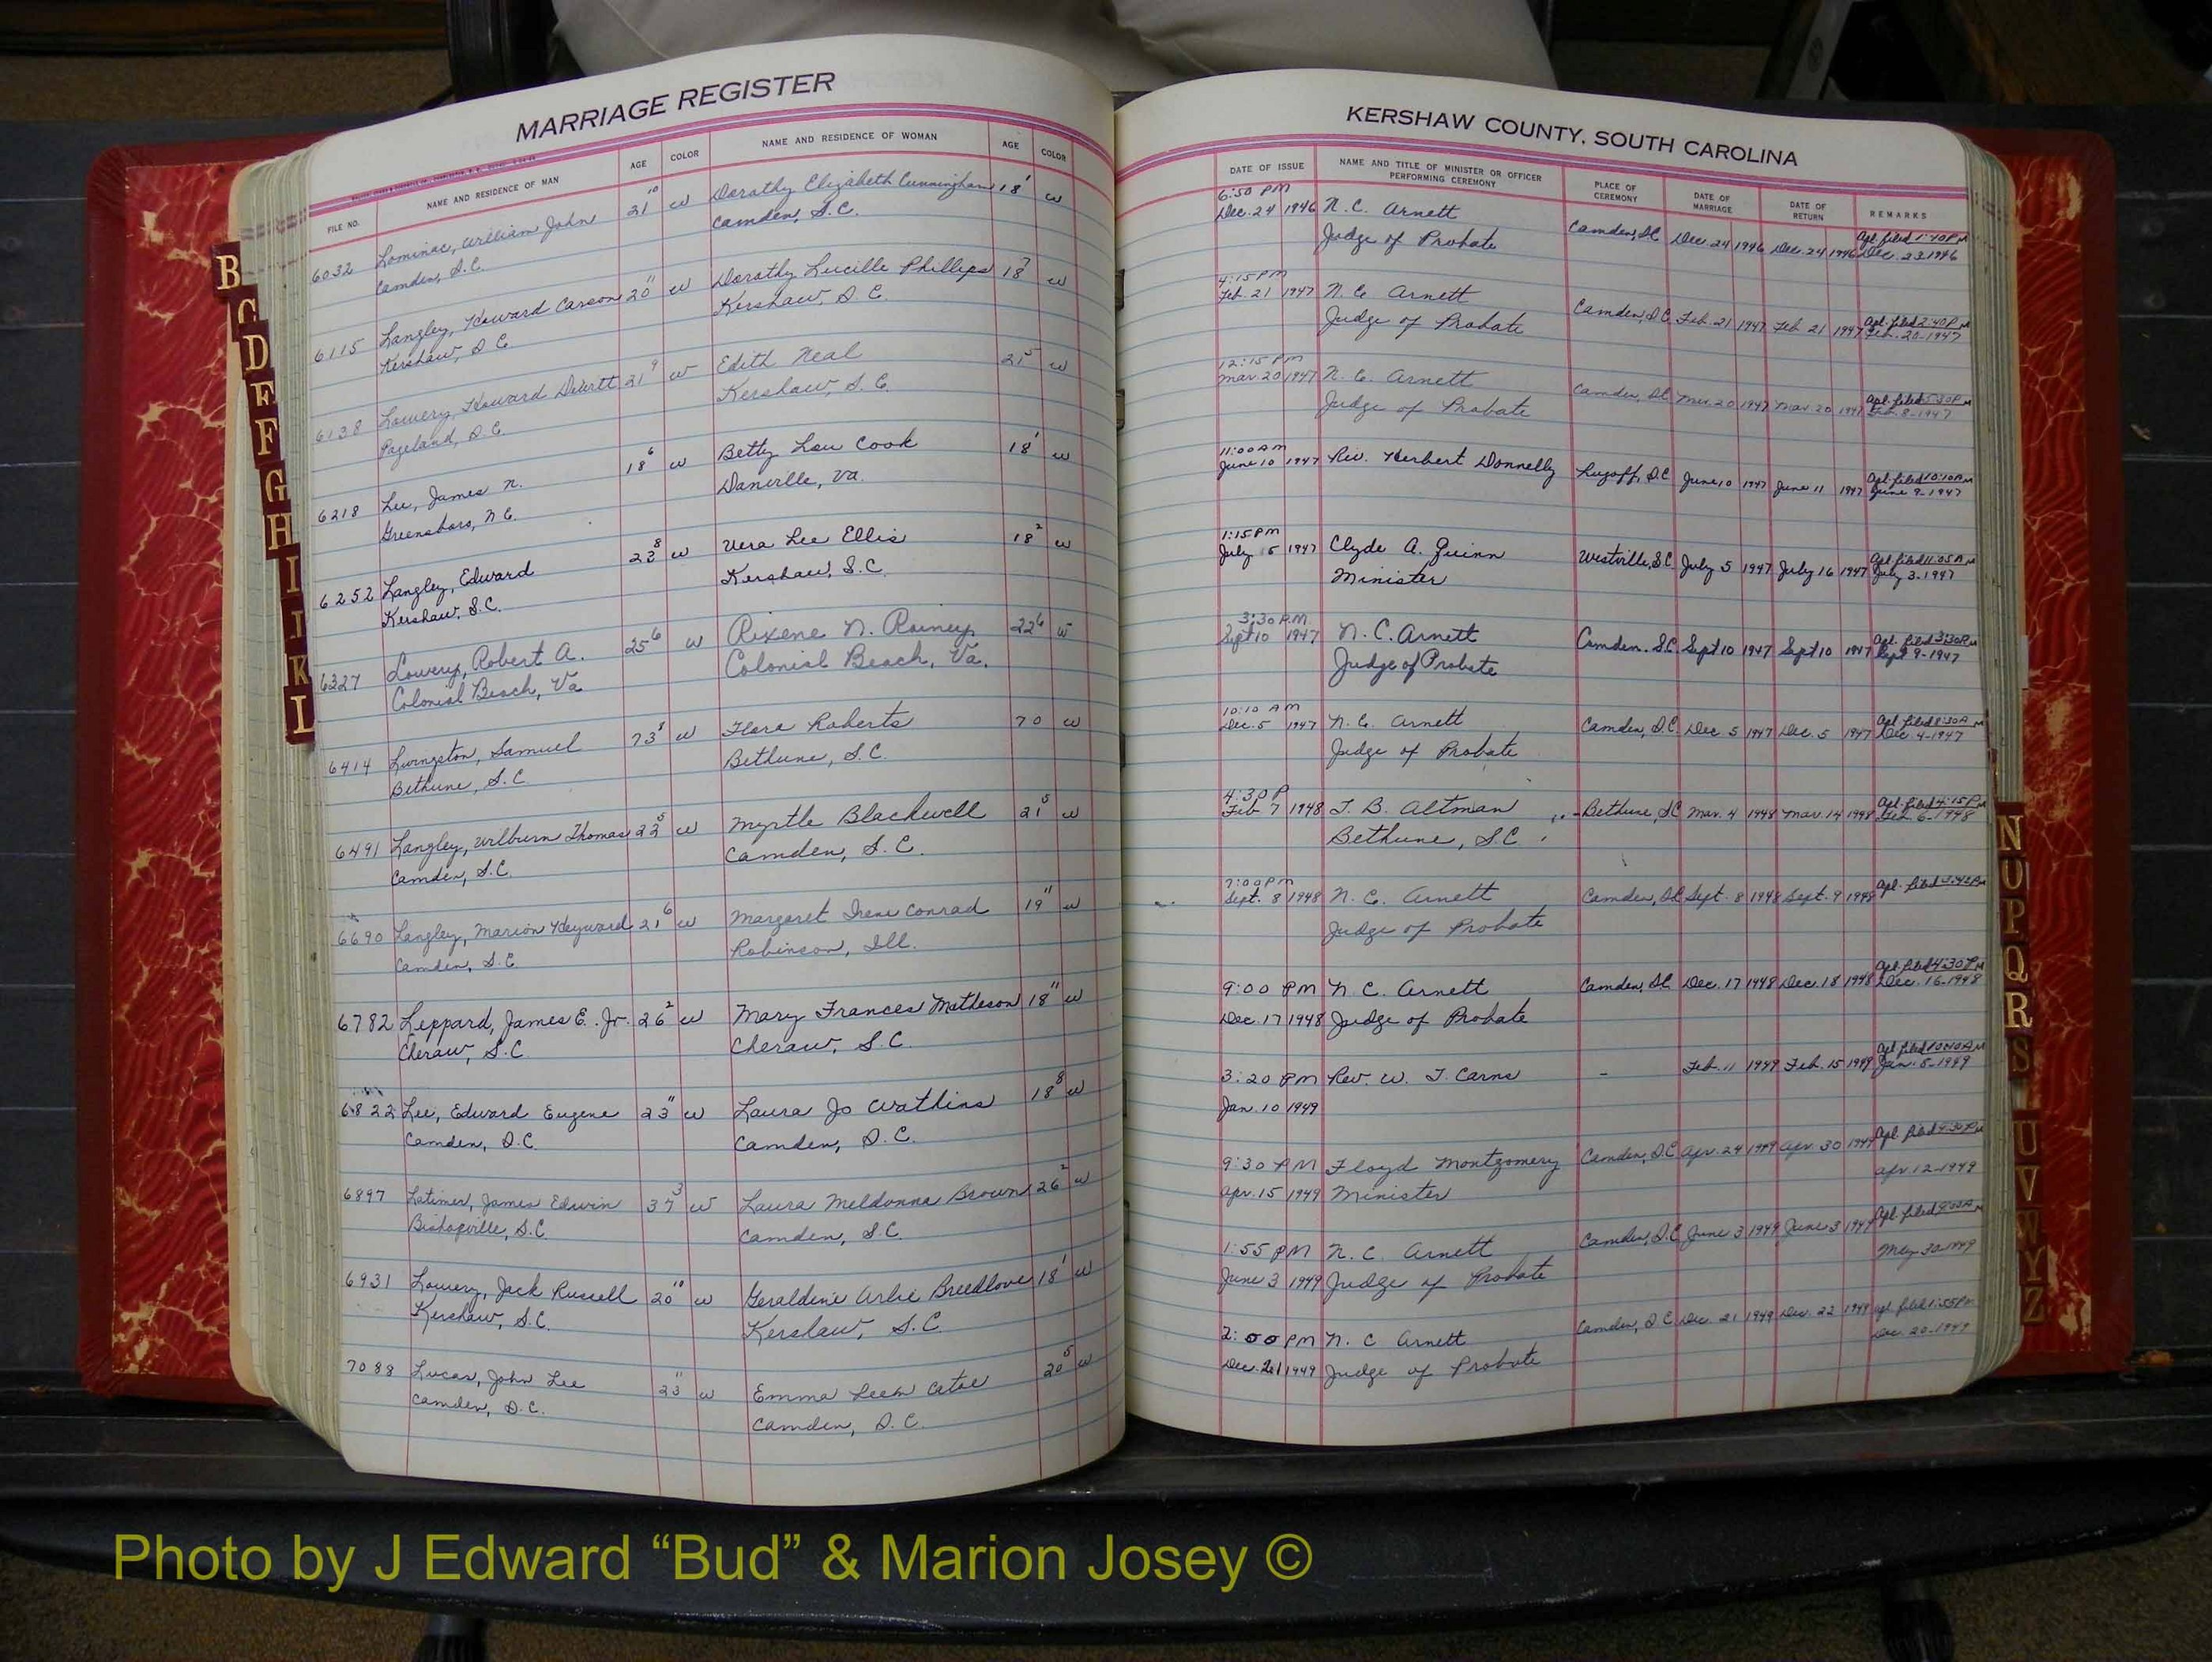 MARRIAGE REGISTER
FILE NO. NAME AND RESIDENCE OF MAN AGE COLOR NAME AND RESIDENCE OF WOMAN AGE COLOR
6032 Lominac, William John 21 10 W Dorathy Elizabeth Cunningham 18 1 W
Camden, S.C. Camden, S.C.
6115 Langley, Howard Carson 20 11 W Dorathy Lucille Phillips 18 7 W
Kershaw, S.C. Kershaw, S.C.
6138 Lowery, Howard Dewitt 21 9 W Edith Neal 21 5 W
Pageland, S.C. Kershaw, S.C.
6218 Lee, James N. 18 6 W Betty Lou Cook 18 1 W
Greensboro, N.C. Danville, Va.
6252 Langley, Edward 23 8 W Vera Lee Ellis 18 2 W
Kershaw, S.C. Kershaw, S.C.
6327 Lowery, Robert A. 25 6 W Rixene N. Rainey 22 6 W
Colonial Beach, Va Colonial Beach, Va.
6414 Livingston, Samuel 73 8 W Flora Roberts 70 W
Bethune, S.C. Bethune, S.C.
6491 Langley, Wilburn Thomas 22 5 W Myrtle Blackwell 21 5 W
Camden, S.C. Camden, S.C.
6690 Langley, Marion Heyward 21 6 W Margaret Irene Conrad 19 11 W
Camden, S.C. Robinson, Ill.
6782 Leppard, James E. Jr. 26 2 W Mary Frances Matheson 18 11 W
Cheraw, S.C. Cheraw, S.C.
6822 Lee, Edward Eugene 23 11 W Laura Jo Watkins 18 8 W
Camden, S.C. Camden, S.C.
6897 Latimer, James Edwin 37 3 W Laura Meldonna Brown 26 2 W
Bishopville, S.C. Camden, S.C.
6931 Lowery, Jack Russell 20 10 W Geraldine Arlie Breedlove 18 1 W
Kershaw, S.C. Kershaw, S.C.
7088 Lucas, John Lee 23 11 W Emma 20 5 W
Camden, S.C. Camden, S.C.
KERSHAW COUNTY, SOUTH CAROLINA
DATE OF ISSUE NAME AND TITLE OF MINISTER OR OFFICER PERFORMING CEREMONY PLACE OF CEREMONY DATE OF MARRIAGE DATE OF RETURN REMARKS
6:50 PM
Dec. 24 1946 N. C. Arnett Camden, SC Dec. 24 1946 Dec. 24 1946 Apl. filed 1:40 PM
Judge of Probate Dec. 23 1946
4:15 PM
Feb. 21 1947 N. C. Arnett Camden, S.C. Feb. 21 1947 Feb 21 1947 Apl. filed 2:40 PM
Judge of Probate Feb. 20-1947
12:15 PM
Mar. 20 1947 N. C. Arnett Camden, SC Mar. 20 1947 Mar. 20 1947 Apl. filed 5:30 PM
Judge of Probate 8-1947
11:00 AM
June 10 1947 Rev. Herbert Donnelly Lugoff, S.C. June 10 1947 June 11 1947 Apl. filed 10:10 AM
June 9-1947
1:15 PM
July 5 1947 Clyde A. Guinn Westville, S.C. July 5 1947 July 16 1947 Apl. filed 11:05 AM
Minister July 3-1947
3:30 P.M.
Sept 10 1947 N. C. Arnett Camden. S.C. Sept 10 1947 Sept 10 1947 Apl. filed 3:30 PM
Judge of Probate Sept 9-1947
10:10 AM
Dec. 5 1947 N. C. Arnett Camden, S.C. Dec. 5 1947 Dec. 5 1947 Apl. filed 8:30 A M
Judge of Probate Dec 4-1947
4:30 P
Feb 7 1948 J. B. Altman Bethune, SC Mar. 4 1948 Mar. 14 1948 Apl. filed 4:15 PM
Bethune, S.C. Feb. 6-1948
7:00 PM
Sept. 8 1948 N. C. Arnett Camden, SC Sept. 8 1948 Sept. 9 1948 Apl. filed 3:42 PM
Judge of Probate
9:00 PM N. C. Arnett Camden, SC Dec. 17 1948 Dec. 18 1948 Apl. filed 4:30 PM
Dec. 17 1948 Judge of Probate Dec. 16-1948
3:20 PM Rev. W. T. Carns - Feb. 11 1949 Feb. 15 1949 Apl. filed 10:40 AM
Jan. 10 1949 Jan. 5-1949
9:30 PM Floyd Montgomery Camden, S.C. Apr. 24 1949 Apr. 30 1949 Apl. filed 4:30 PM
Apr. 15 1949 Minister Apr. 12-1949
1:55 PM N. C. Arnett Camden, S.C. June 3 1949 June 3 1949 Apl. filed 9:30 AM
June 3 1949 Judge of Probate May 30-1949
2:00 PM N. C. Arnett Camden, S.C. Dec. 21 1949 Dec. 22 1949 Apl. filed 1:55 PM
Dec. 21 1949 Judge of Probate Dec. 20-1949
B
C
D
E
F
G
H
I
J
K
L
N
O
P
Q
R
S
U
V
W
Y
Z
Photo by J Edward “Bud” & Marion Josey ©